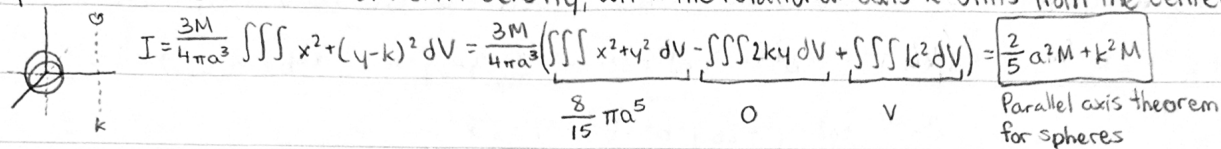 I = 3M/4πa³ ∭ x²+(y-k)² dV = 3M/4πa³ (∭ x²+y² dV - ∭ 2ky dV + ∭ k² dV) = 2/5 a²M + k²M
8/15 πa⁵ 0 V
k
Parallel axis theorem
for spheres